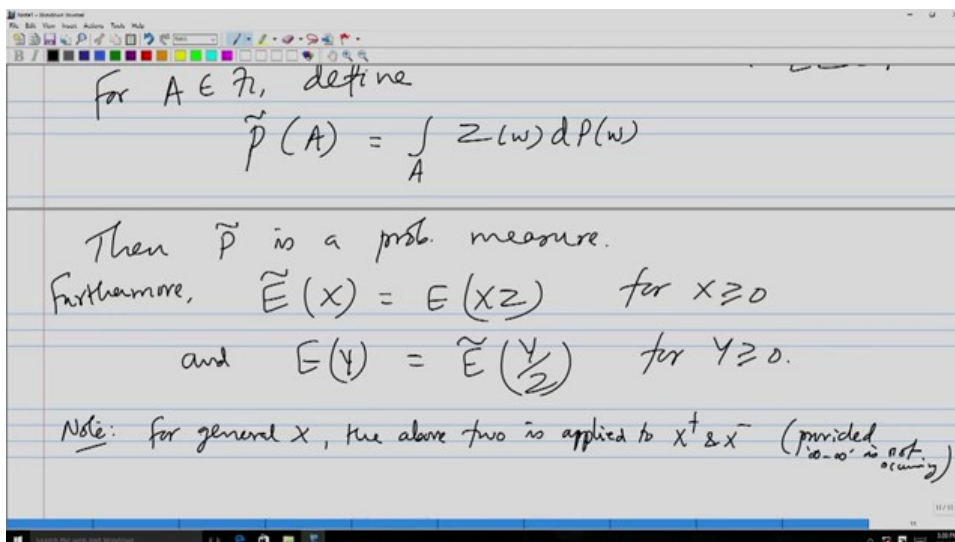 Note1 - Windows Journal
File Edit View Insert Actions Tools Help
B I
For A ∈ 𝓕, define
P̃ (A) = ∫_A Z(ω) dP(ω)
Then P̃ is a prob. measure.
Furthermore, Ẽ(X) = E(XZ) for X ≥ 0
and E(Y) = Ẽ(Y/Z) for Y ≥ 0.
Note: For general X, the above two is applied to X⁺ & X⁻ (provided '∞-∞' is not occuring)
11/11
Search the web and Windows